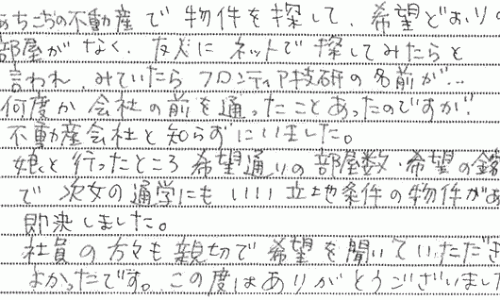 あちこちの不動産で物件を探して、希望どおりの
部屋がなく、友人にネットで探してみたらと
言われ、みていたらフロンティア技研の名前が…
何度か会社の前を通ったことあったのですが、
不動産会社と知らずにいました。
娘と行ったところ希望通りの部屋数・希望の金額
で次女の通学にもいい立地条件の物件があ
即決しました。
社員の方々も親切で希望を聞いていただき
よかったです。この度はありがとうございまし